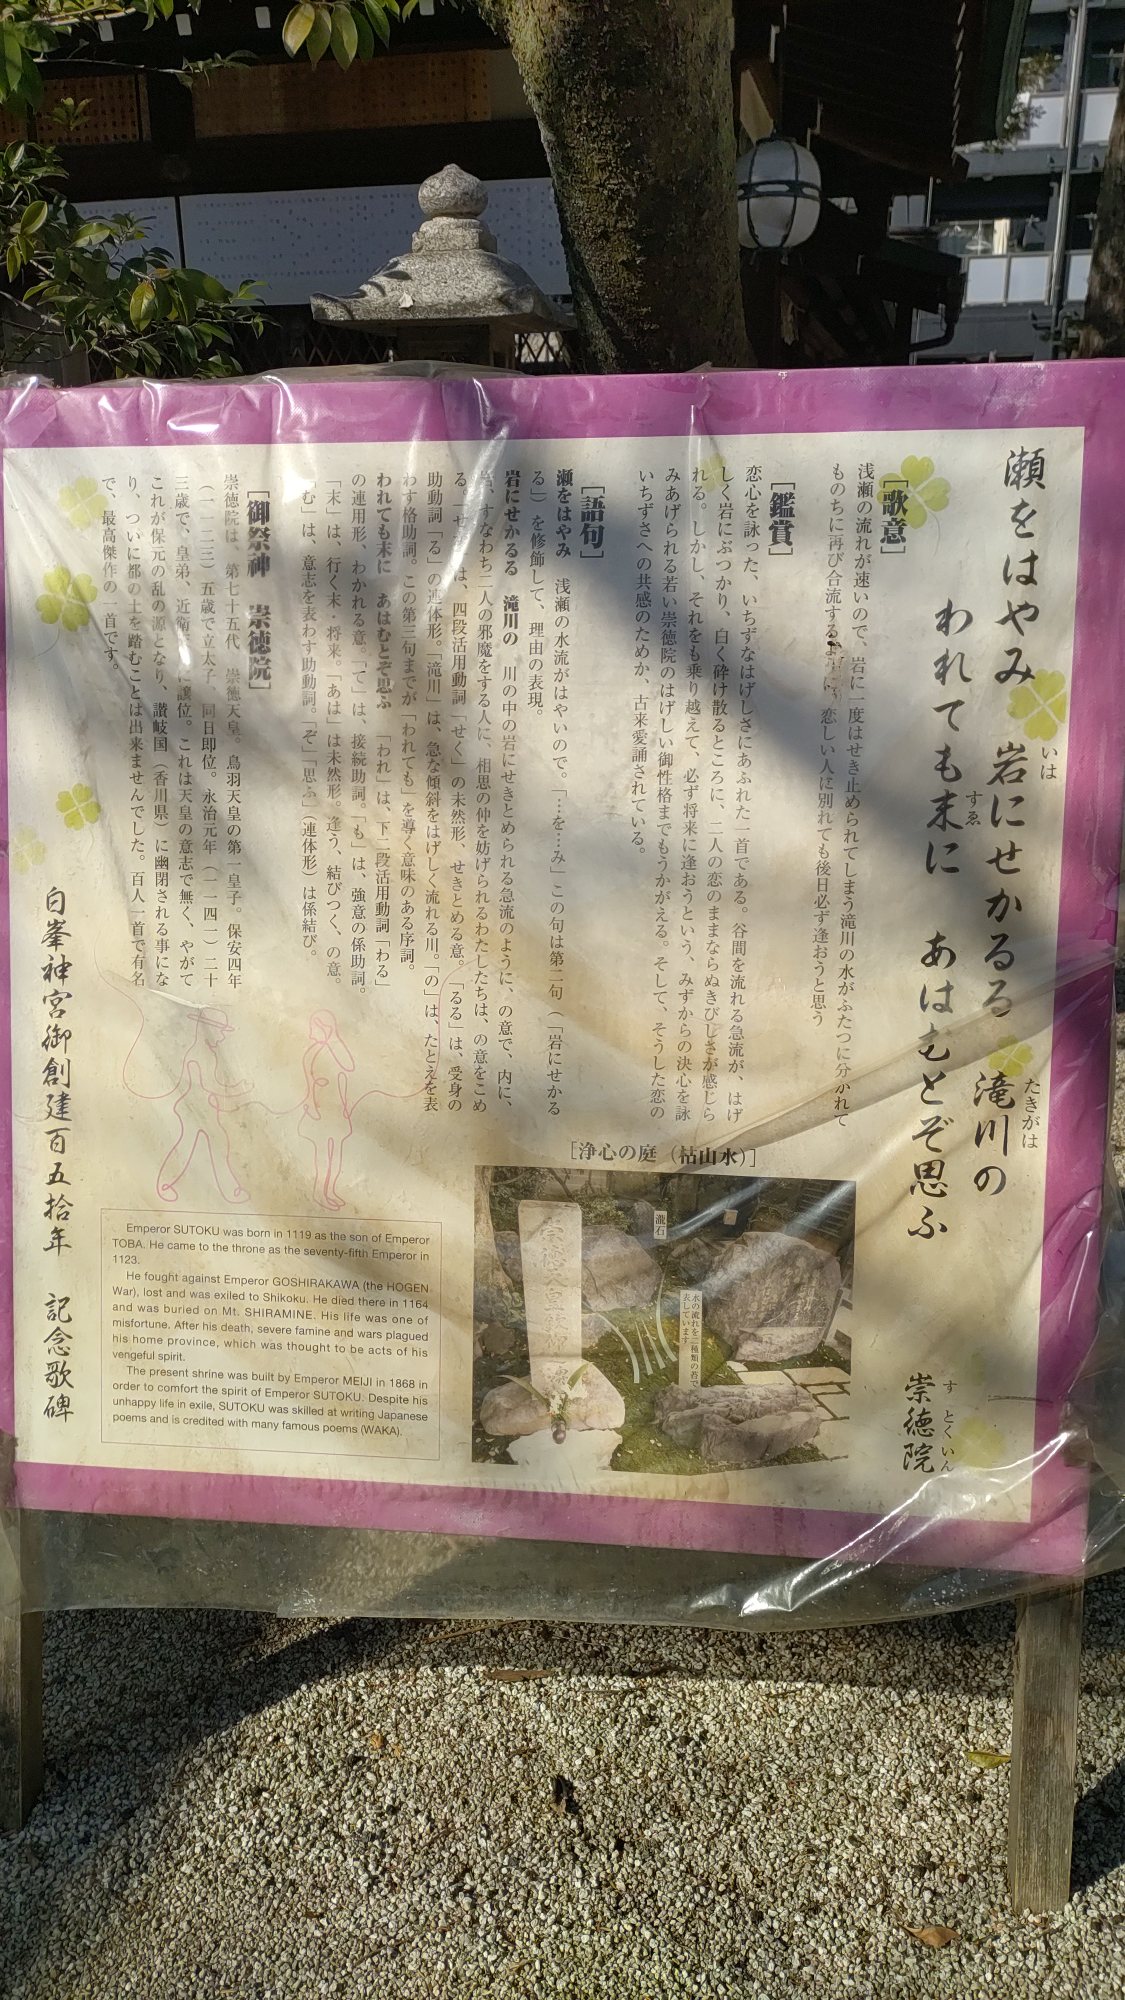 瀬をはやみ　岩にせかるる　滝川の
いは
たきがは
われても末に　あはむとぞ思ふ
すゑ
崇徳院
すとくいん
［歌意］
浅瀬の流れが速いので、岩に一度はせき止められてしまう滝川の水がふたつに分かれて
ものちに再び合流するように、恋しい人に別れても後日必ず逢おうと思う
［鑑賞］
恋心を詠った、いちずなはげしさにあふれた一首である。谷間を流れる急流が、はげ
しく岩にぶつかり、白く砕け散るところに、二人の恋のままならぬきびしさが感じら
れる。しかし、それをも乗り越えて、必ず将来に逢おうという、みずからの決心を詠
みあげられる若い崇徳院のはげしい御性格までもうかがえる。そして、そうした恋の
いちずさへの共感のためか、古来愛誦されている。
［語句］
瀬をはやみ　浅瀬の水流がはやいので。「…を…み」この句は第二句（「岩にせかる
る」）を修飾して、理由の表現。
岩にせかるる　滝川の　川の中の岩にせきとめられる急流のように、の意で、内に、
岩、すなわち二人の邪魔をする人に、相思の仲を妨げられるわたしたちは、の意をこめ
る。「せか」は、四段活用動詞「せく」の未然形、せきとめる意。「るる」は、受身の
助動詞「る」の連体形。「滝川」は、急な傾斜をはげしく流れる川。「の」は、たとえを表
わす格助詞。この第三句までが「われても」を導く意味のある序詞。
われても末に　あはむとぞ思ふ　「われ」は、下二段活用動詞「わる」
の連用形、わかれる意。「て」は、接続助詞。「も」は、強意の係助詞。
「末」は、行く末・将来。「あは」は未然形。逢う、結びつく、の意。
「む」は、意志を表わす助動詞。「ぞ」「思ふ」（連体形）は係結び。
［御祭神　崇徳院］
崇徳院は、第七十五代　崇徳天皇。鳥羽天皇の第一皇子。保安四年
（一一二三）五歳で立太子、同日即位。永治元年（一一四一）二十
三歳で、皇弟、近衛に譲位。これは天皇の意志で無く、やがて
これが保元の乱の源となり、讃岐国（香川県）に幽閉される事にな
り、ついに都の土を踏むことは出来ませんでした。百人一首で有名
で、最高傑作の一首です。
白峯神宮御創建百五拾年　記念歌碑
［浄心の庭（枯山水）］
瀧石
水の流れを二種類の苔で
表しています
崇徳天皇
Emperor SUTOKU was born in 1119 as the son of Emperor
TOBA. He came to the throne as the seventy-fifth Emperor in
1123.
He fought against Emperor GOSHIRAKAWA (the HOGEN
War), lost and was exiled to Shikoku. He died there in 1164
and was buried on Mt. SHIRAMINE. His life was one of
misfortune. After his death, severe famine and wars plagued
his home province, which was thought to be acts of his
vengeful spirit.
The present shrine was built by Emperor MEIJI in 1868 in
order to comfort the spirit of Emperor SUTOKU. Despite his
unhappy life in exile, SUTOKU was skilled at writing Japanese
poems and is credited with many famous poems (WAKA).